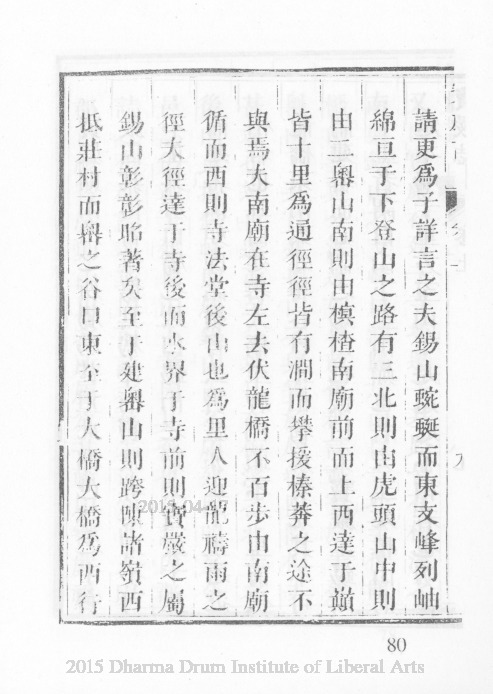 請更爲子詳言之夫錫山蜿蜒而東支峰列岫
綿亘于下登山之路有三北則由虎頭山中則
由二嶴山南則由槙楂南廟前而上西達于巔
皆十里爲通徑徑皆有澗而攀援榛莽之途不
與焉夫南廟在寺左去伏龍橋不百步由南廟
循而西則寺法堂後山也爲里人迎龍禱雨之
徑夫徑達于寺後而水界于寺前則寶嚴之屬
錫山彰彰昭著矣至于建嶴山則跨隴諸嶺西
抵莊村而嶴之谷口東至于大橋大橋爲西行
80
2015 Dharma Drum Institute of Liberal Arts